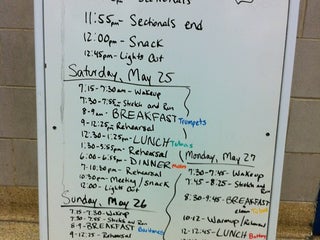 Sectionals
11:55pm- Sectionals end
12:00am- Snack
12:45am- Lights Out
Saturday, May 25
7:15-7:30am- Wakeup
7:30-7:55- Stretch and Run
8-9am- BREAKFAST Trumpets
9-12:25pm- Rehearsal
12:30-1:25pm- LUNCH Tubas
1:30-5:55pm- Rehearsal
6:00-6:55pm- DINNER Mellos
7-10:30pm- Rehearsal
10:30pm- Meeting/Snack
12:00- Lights Out
Sunday, May 26
7:15-7:30- Wakeup
7:30-7:55- Stretch and Run
8-9- BREAKFAST Baritones
9-12:25- Rehearsal
Monday, May 27
7:30-7:45- Wakeup
7:45-8:25- Stretch and
8:30-9:45- BREAKFAST
clean
10-12- Warmup/Rehearsal
12-12:45- LUNCH